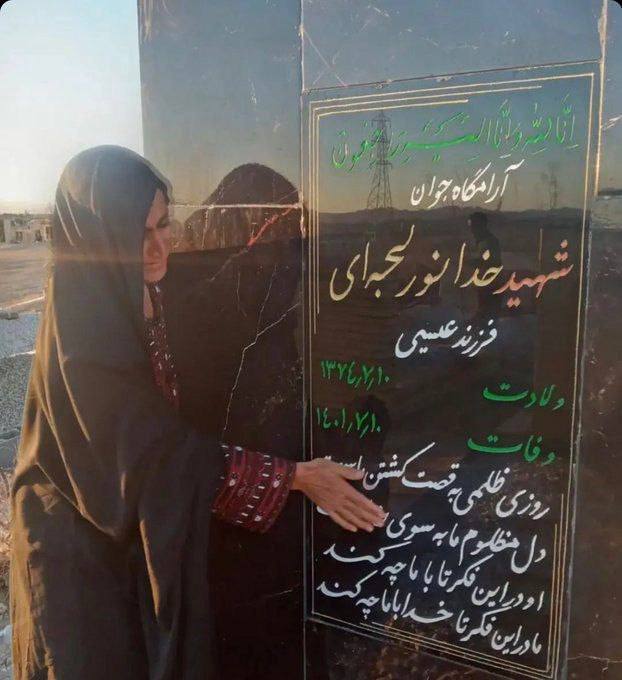 انا لله و انا الیه راجعون
آرامگاه جوان
شهید خدانور لجه‌ای
فرزند عیسی
ولادت ۱۳۷۴/۷/۱۰
وفات ۱۴۰۱/۷/۱۰
روزی ظلمی به قصد کشتن
دل مظلوم ما به سوی
او در این فکر تا با ما چه کند
ما در این فکر تا خدا با ما چه کند